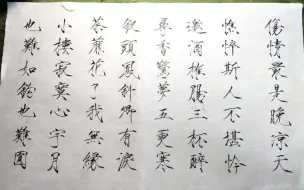 傷情最是晚涼天
憔悴斯人不堪怜
邀酒摧腸三杯醉
尋香驚夢五更寒
釵頭鳳斜卿有淚
荼蘼花了我無緣
小樓寂寞心宇月
也難如鉤也難圓